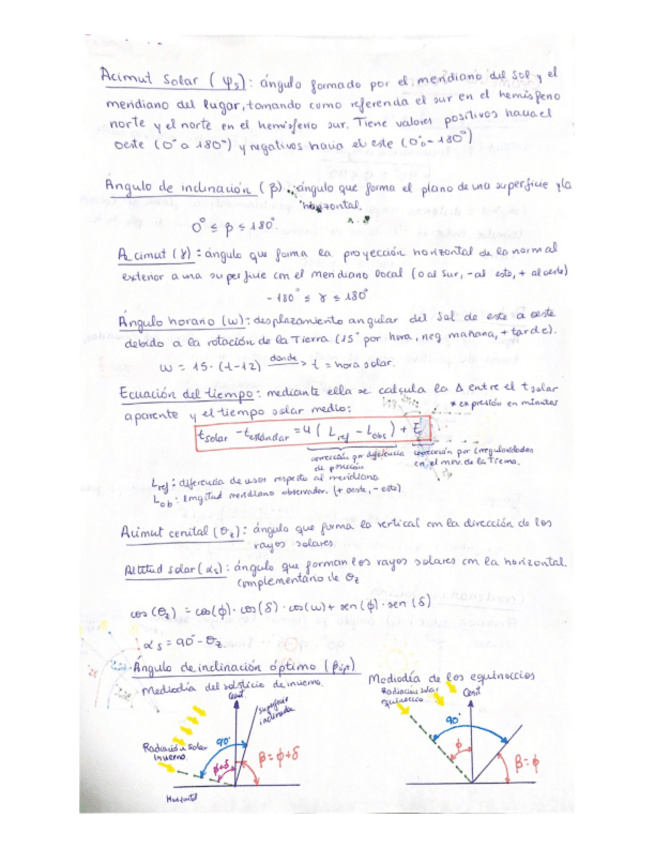 Acimut Solar (Ψs): ángulo formado por el meridiano del sol y el
meridiano del lugar, tomando como referencia el sur en el hemisferio
norte y el norte en el hemisferio sur. Tiene valores positivos hacia el
oeste (0° a 180°) y negativos hacia el este (0° a -180°)
Ángulo de inclinación (β): ángulo que forma el plano de una superficie y la
horizontal.
0° ≤ β ≤ 180°
Acimut (γ): ángulo que forma la proyección horizontal de la normal
exterior a una superficie con el meridiano local (0 al sur, - al este, + al oeste)
-180° ≤ γ ≤ 180°
Ángulo horario (w): desplazamiento angular del Sol de este a oeste
debido a la rotación de la Tierra (15° por hora, neg mañana, + tarde).
w = 15 · (t-12) donde > t = hora solar.
Ecuación del tiempo: mediante ella se calcula la Δ entre el t solar
aparente y el tiempo solar medio: * expresión en minutos
t solar - t estándar = 4 ( L ref - L obs ) + E
corrección por diferencia corrección por irregularidades
de posición en el mov. de la Tierra.
L ref: diferencia de usos respecto al meridiano
L ob: longitud meridiano observador. (+ oeste, - este)
Acimut cenital (θz): ángulo que forma la vertical con la dirección de los
rayos solares
Altitud solar (αs): ángulo que forman los rayos solares con la horizontal.
complementario de θz
cos (θz) = cos(ϕ) · cos(δ) · cos(w) + sen (ϕ) · sen (δ)
αs = 90° - θz
Ángulo de inclinación óptimo (βópt)
Mediodía del solsticio de invierno.
Cent.
superficie
inclinada
Radiación solar
invierno
90°
ϕ+δ
β = ϕ+δ
Horizontal
Mediodía de los equinoccios
Radiación solar
equinoccio
Cenit
90°
ϕ
β = ϕ